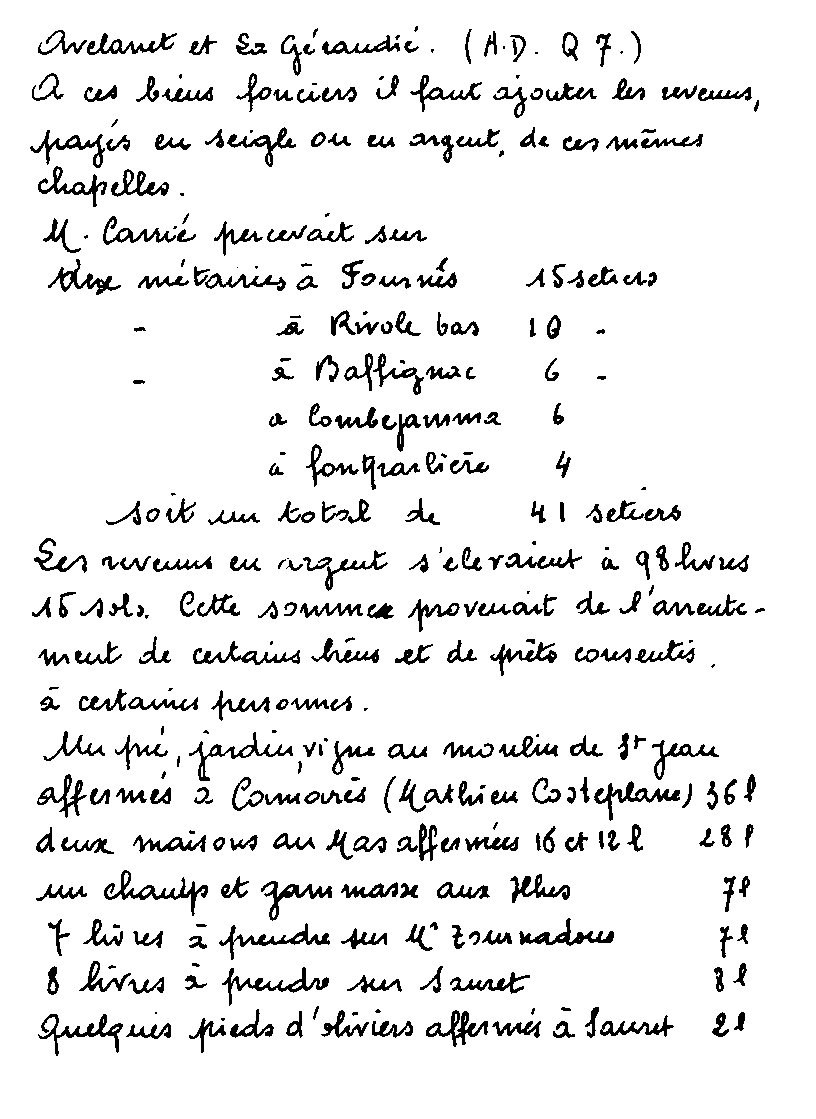 Avelanet et La Géraudié. (A.D. Q 7.)
A ces biens fonciers il faut ajouter les revenus,
payés en seigle ou en argent, de ces mêmes
chapelles.
M. Carrié percevait sur
deux métairies à Fournés 15 setiers
- à Rivole bas 10 -
- à Baffignac 6 -
a Combejamma 6
à fontparlière 4
soit un total de 41 setiers
Les revenus en argent s'elevaient à 98 livres
15 sols. Cette somme provenait de l'arrente-
ment de certains biens et de prêts consentis
à certaines personnes.
Un pré, jardin, vigne au moulin de St Jean
affermés à Camarès (Mathieu Costeplane) 36 l
deux maisons au Mas affermées 16 et 12 l 28 l
un champ et gammasse aux 7 l
7 livres à prendre sur Mr Tournadous 7 l
8 livres à prendre sur Sauret 8 l
Quelques pieds d'oliviers affermés à Sauret 2 l